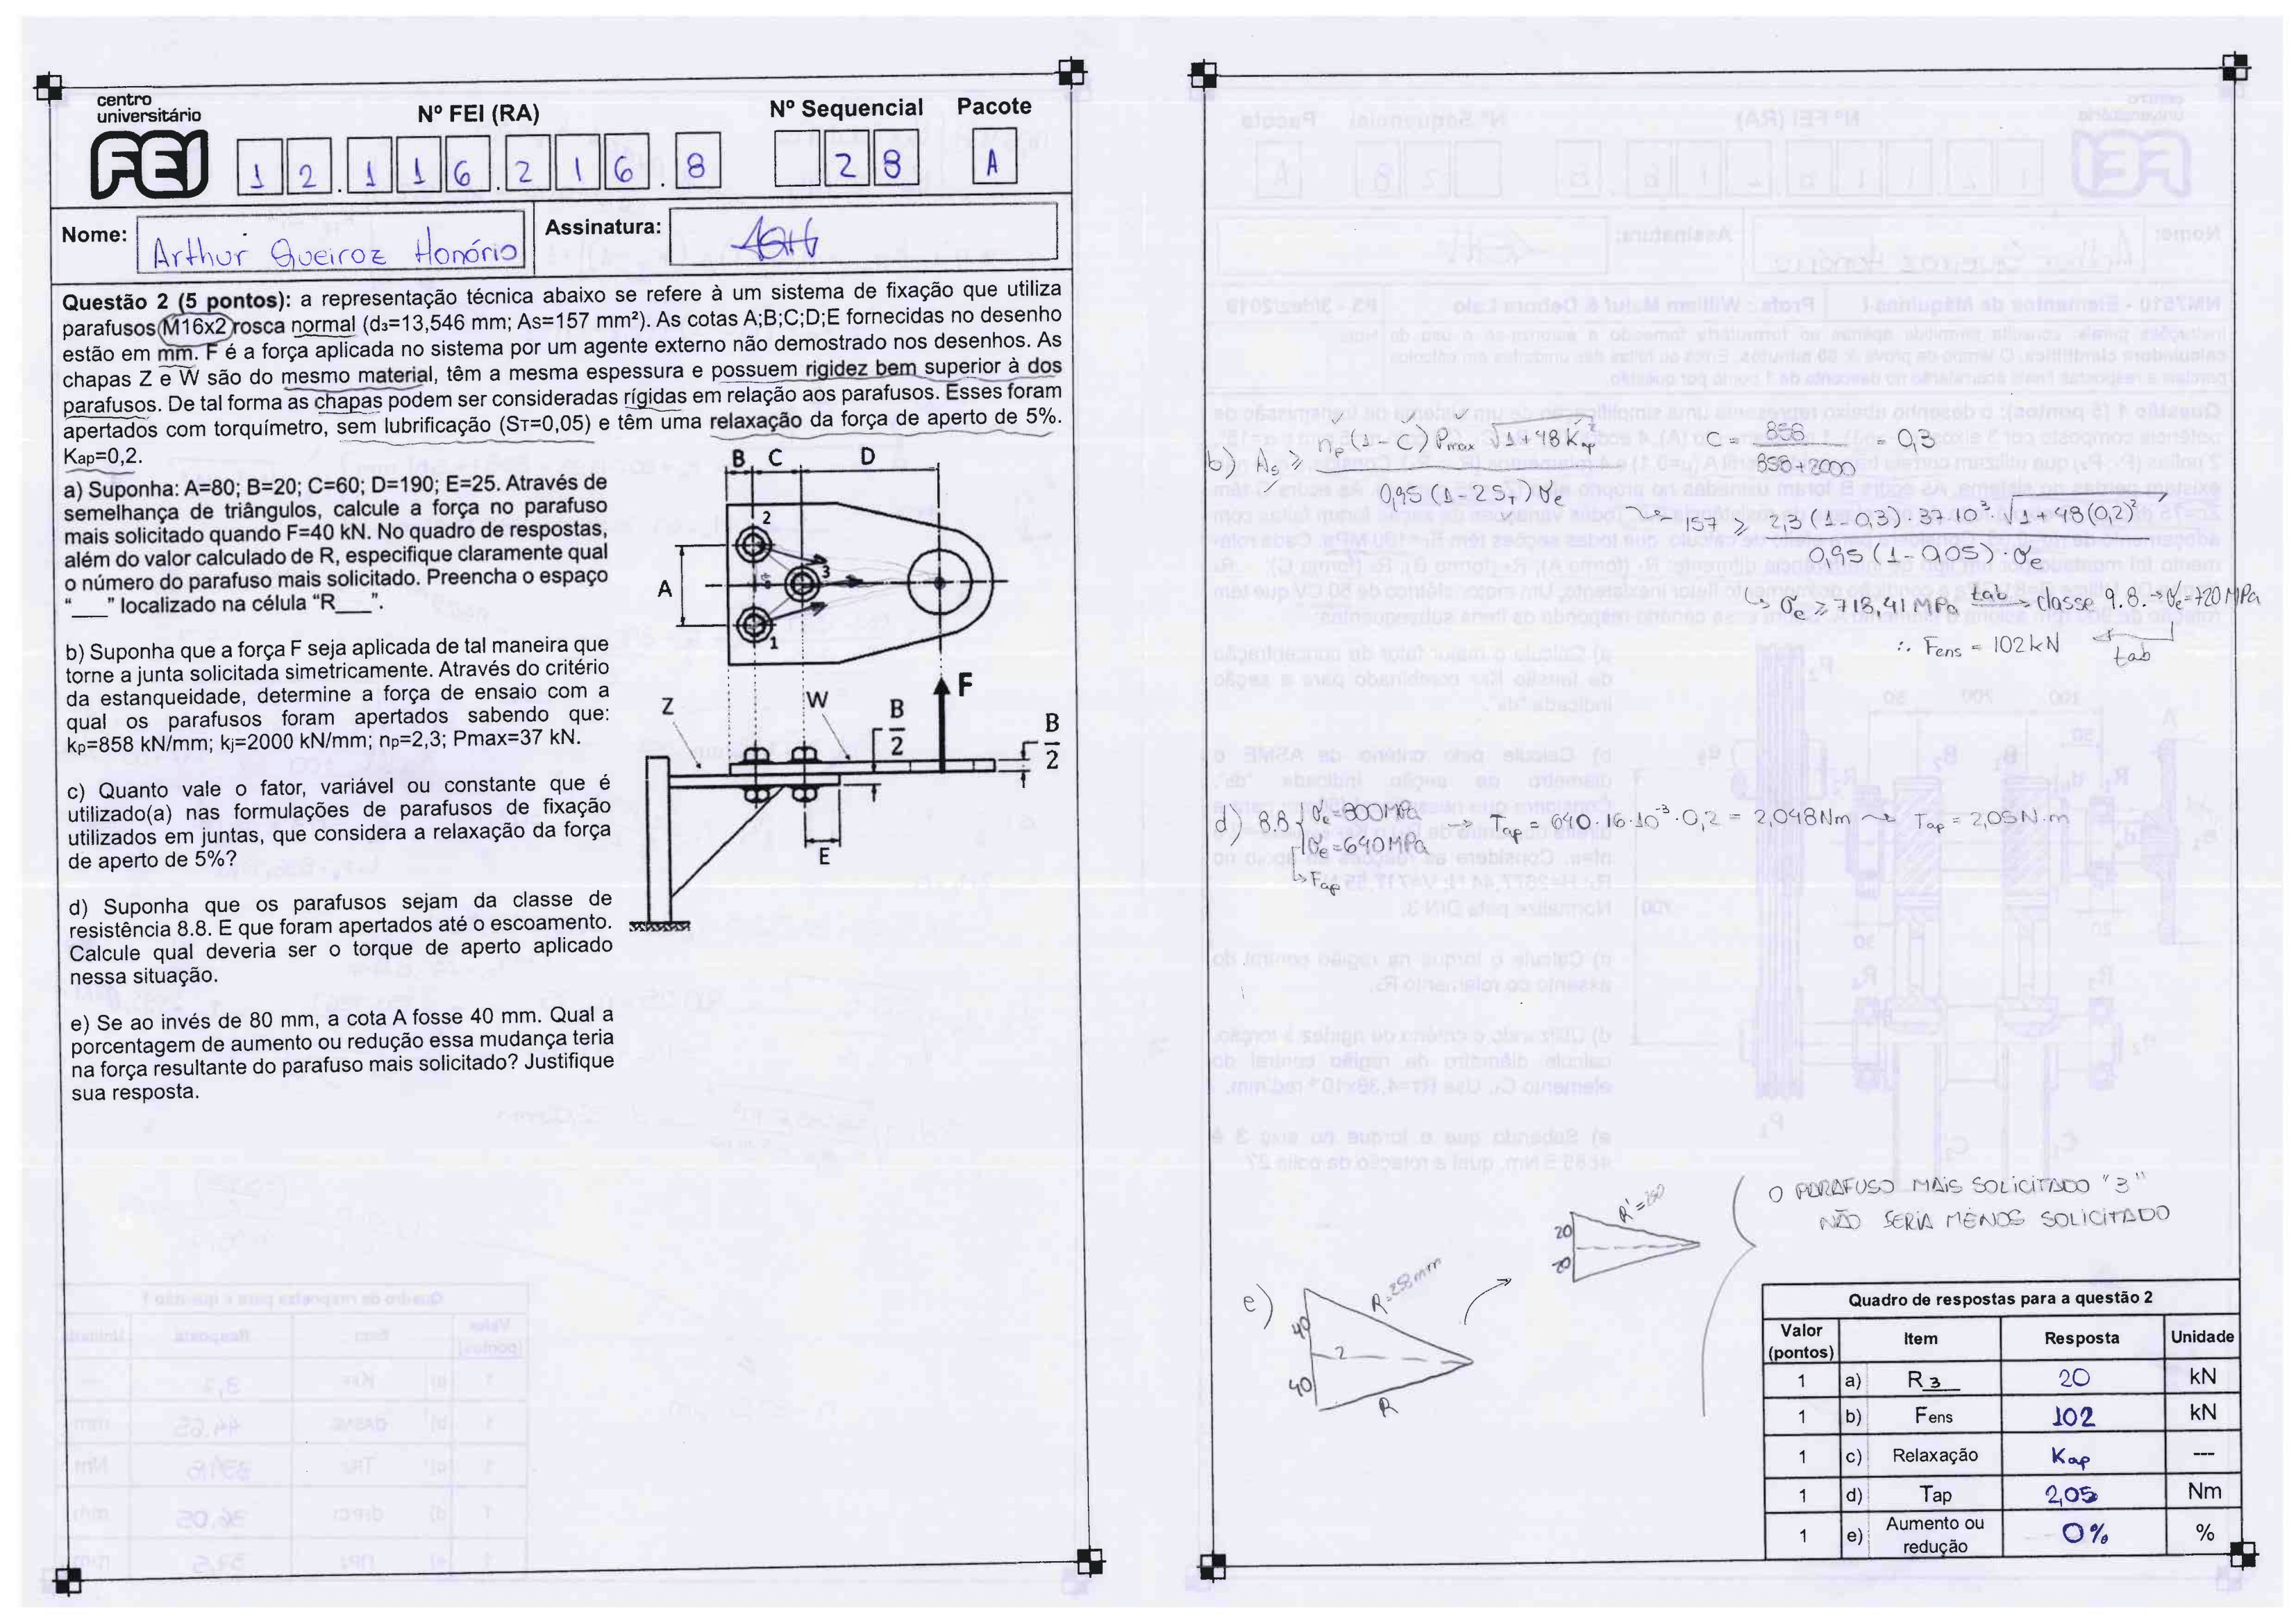 centro
universitário
FEI
Nº FEI (RA)
Nº Sequencial
Pacote
12.116.216.8
28
A
Nome:
Arthur Queiroz Honório
Assinatura:
Questão 2 (5 pontos): a representação técnica abaixo se refere à um sistema de fixação que utiliza
parafusos M16x2 rosca normal (d₃=13,546 mm; As=157 mm²). As cotas A;B;C;D;E fornecidas no desenho
estão em mm. F é a força aplicada no sistema por um agente externo não demostrado nos desenhos. As
chapas Z e W são do mesmo material, têm a mesma espessura e possuem rigidez bem superior à dos
parafusos. De tal forma as chapas podem ser consideradas rígidas em relação aos parafusos. Esses foram
apertados com torquímetro, sem lubrificação (ST=0,05) e têm uma relaxação da força de aperto de 5%.
Kap=0,2.
a) Suponha: A=80; B=20; C=60; D=190; E=25. Através de
semelhança de triângulos, calcule a força no parafuso
mais solicitado quando F=40 kN. No quadro de respostas,
além do valor calculado de R, especifique claramente qual
o número do parafuso mais solicitado. Preencha o espaço
"___" localizado na célula "R___".
b) Suponha que a força F seja aplicada de tal maneira que
torne a junta solicitada simetricamente. Através do critério
da estanqueidade, determine a força de ensaio com a
qual os parafusos foram apertados sabendo que:
kp=858 kN/mm; kj=2000 kN/mm; np=2,3; Pmax=37 kN.
c) Quanto vale o fator, variável ou constante que é
utilizado(a) nas formulações de parafusos de fixação
utilizados em juntas, que considera a relaxação da força
de aperto de 5%?
d) Suponha que os parafusos sejam da classe de
resistência 8.8. E que foram apertados até o escoamento.
Calcule qual deveria ser o torque de aperto aplicado
nessa situação.
e) Se ao invés de 80 mm, a cota A fosse 40 mm. Qual a
porcentagem de aumento ou redução essa mudança teria
na força resultante do parafuso mais solicitado? Justifique
sua resposta.
B C D
2
3
A
1
F
Z W B/2 B/2
E
b) As ≥ np (1 - C) Pmax √1+48 Kap² / 0,95 (1-2ST) σe
C = 858 / 858+2000 = 0,3
157 ≥ 2,3 (1-0,3) · 37·10³ · √1+48(0,2)² / 0,95 (1-0,05) · σe
↳ σe ≥ 718,41 MPa tab→ classe 9.8. → σe=720 MPa
∴ Fens = 102 kN
tab
d) 8.8 { σe=800MPa
σe=640MPa
↳ Fap
→ Tap = 640 · 16·10⁻³ · 0,2 = 2,048Nm → Tap = 2,05 N·m
O PARAFUSO MAIS SOLICITADO "3"
NÃO SERIA MENOS SOLICITADO
20
20
R'=250
e)
40
40
2
R=258mm
R
Quadro de respostas para a questão 2
Valor (pontos) Item Resposta Unidade
1 a) R 3 20 kN
1 b) Fens 102 kN
1 c) Relaxação Kap ---
1 d) Tap 2,05 Nm
1 e) Aumento ou redução 0% %